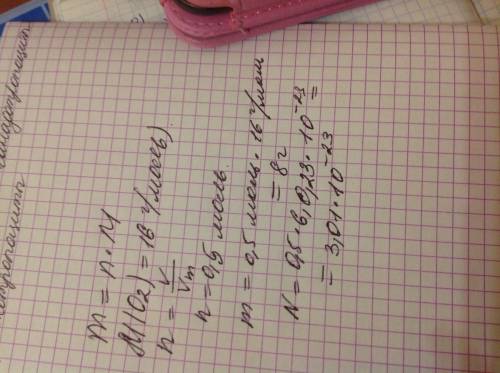 m = n · M
M(O2) = 16 г/моль)
n = V/Vm
n = 0,5 моль.
m = 0,5 моль · 16 г/моль
= 8 г
N = 0,5 · 6,0,23 · 10⁻²³ =
= 3,01 · 10⁻²³